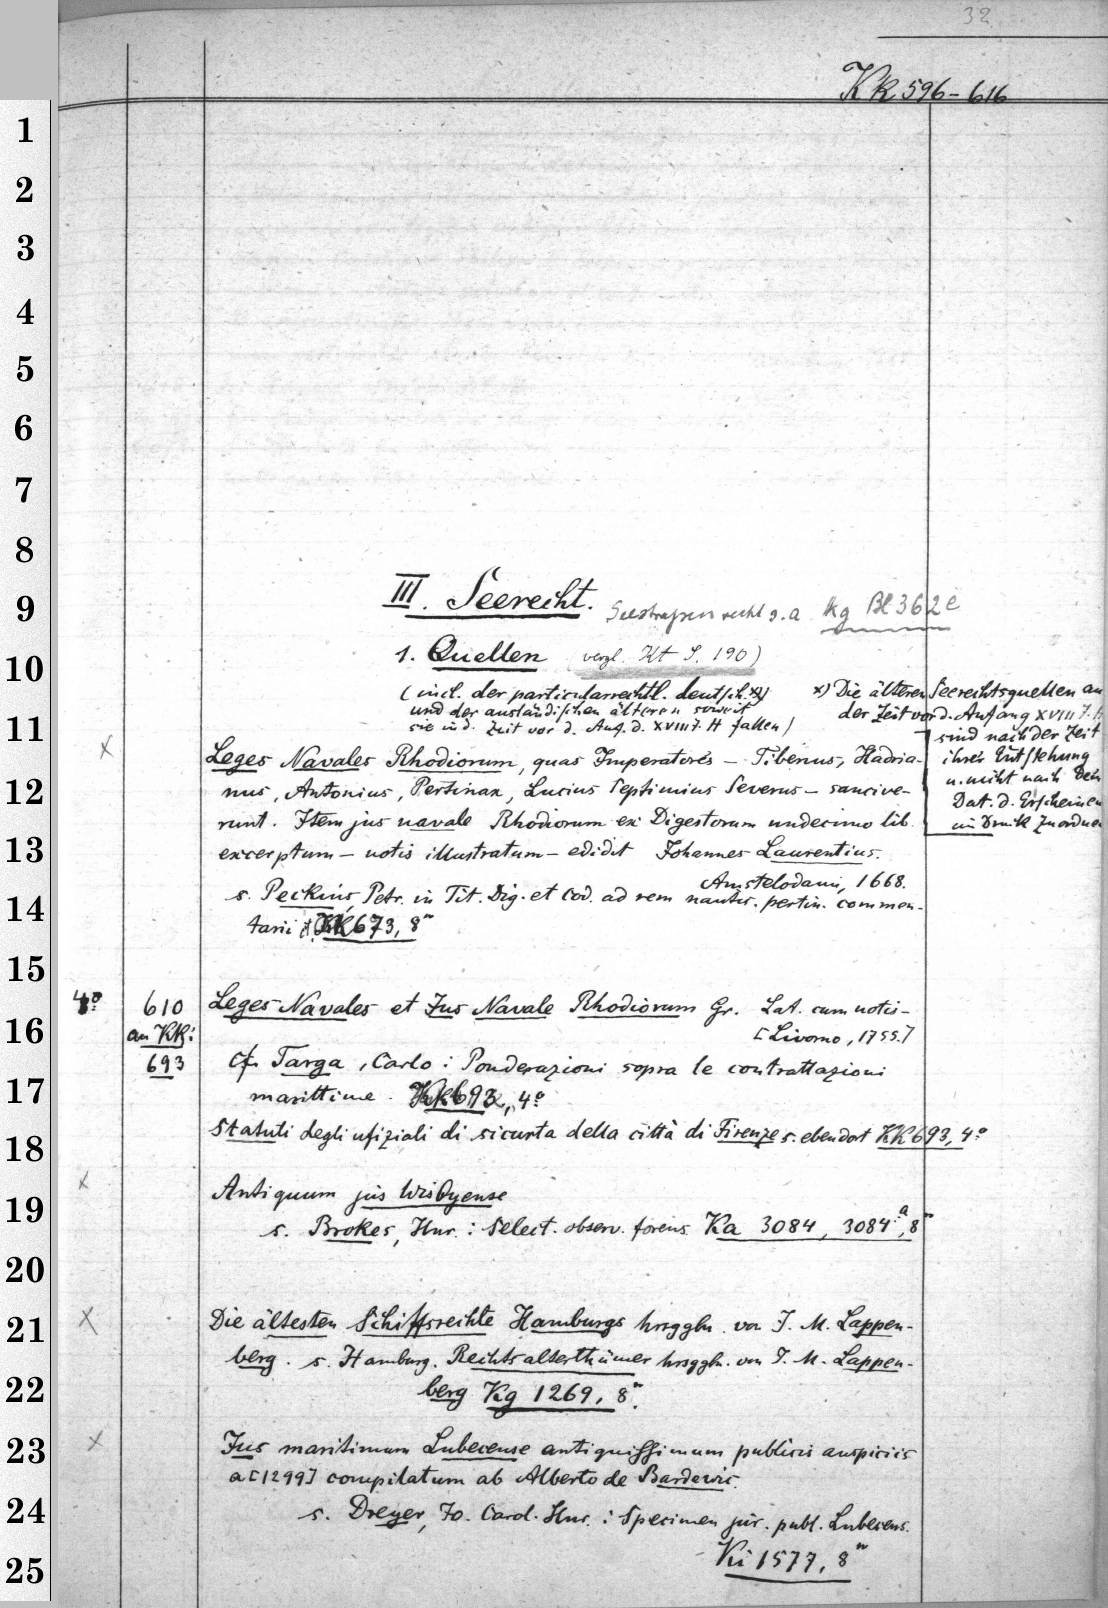 32
Kk 596-616
III. Seerecht. Seestrafenrecht s. a Kg Bl 362 e
1. Quellen (vergl. Kt S. 190)
(incl. der particularrechtl. deutsch. x)
und der ausländischen älteren soweit
sie in d. Zeit vor d. Anf. d. XVIII J. H fallen)
x) Die älteren Seerechtsquellen an
der Zeit vor d. Anfang XVIII J. H
sind nach der Zeit
ihrer Entstehung
u. nicht nach dem
Dat. d. Erscheinen
im Druck zu ordnen
Leges Navales Rhodiorum, quas Imperatores - Tiberius, Hadria-
nus, Antonius, Pertinax, Lucius Septimius Severus - sancive-
runt. Item jus navale Rhodiorum ex Digestorum undecimo lib.
excerptum - notis illustratum - edidit Johannes Laurentius.
Amstelodami, 1668.
s. Peckius, Petr. in Tit. Dig. et Cod. ad rem nautic. pertin. commen-
tarii Kk 673, 8°
4° 610 Leges Navales et Jus Navale Rhodiorum Gr. Lat. cum notis -
an KK: [Livorno, 1755.]
693 cf. Targa, Carlo: Ponderazioni sopra le contrattazioni
marittime. Kk 693, 4°
Statuti degli ufiziali di sicurta della città di Firenze s. ebendort KK 693, 4°
Antiquum jus Wisbyense
s. Brokes, Hnr.: Select. observ. forens. Ka 3084, 3084 a, 8°
Die ältesten Schiffsrechte Hamburgs hrsggbn. von J. M. Lappen-
berg. s. Hamburg. Rechtsalterthümer hrsggbn. von J. M. Lappen-
berg Kg 1269, 8°.
Jus maritimum Lubecense antiquissimum publicis auspiciis
a [1299] compilatum ab Alberto de Bardewic.
s. Dreyer, Jo. Carol. Hnr.: Specimen jur. publ. Lubecens.
Ki 1577, 8°
1
2
3
4
5
6
7
8
9
10
11
12
13
14
15
16
17
18
19
20
21
22
23
24
25